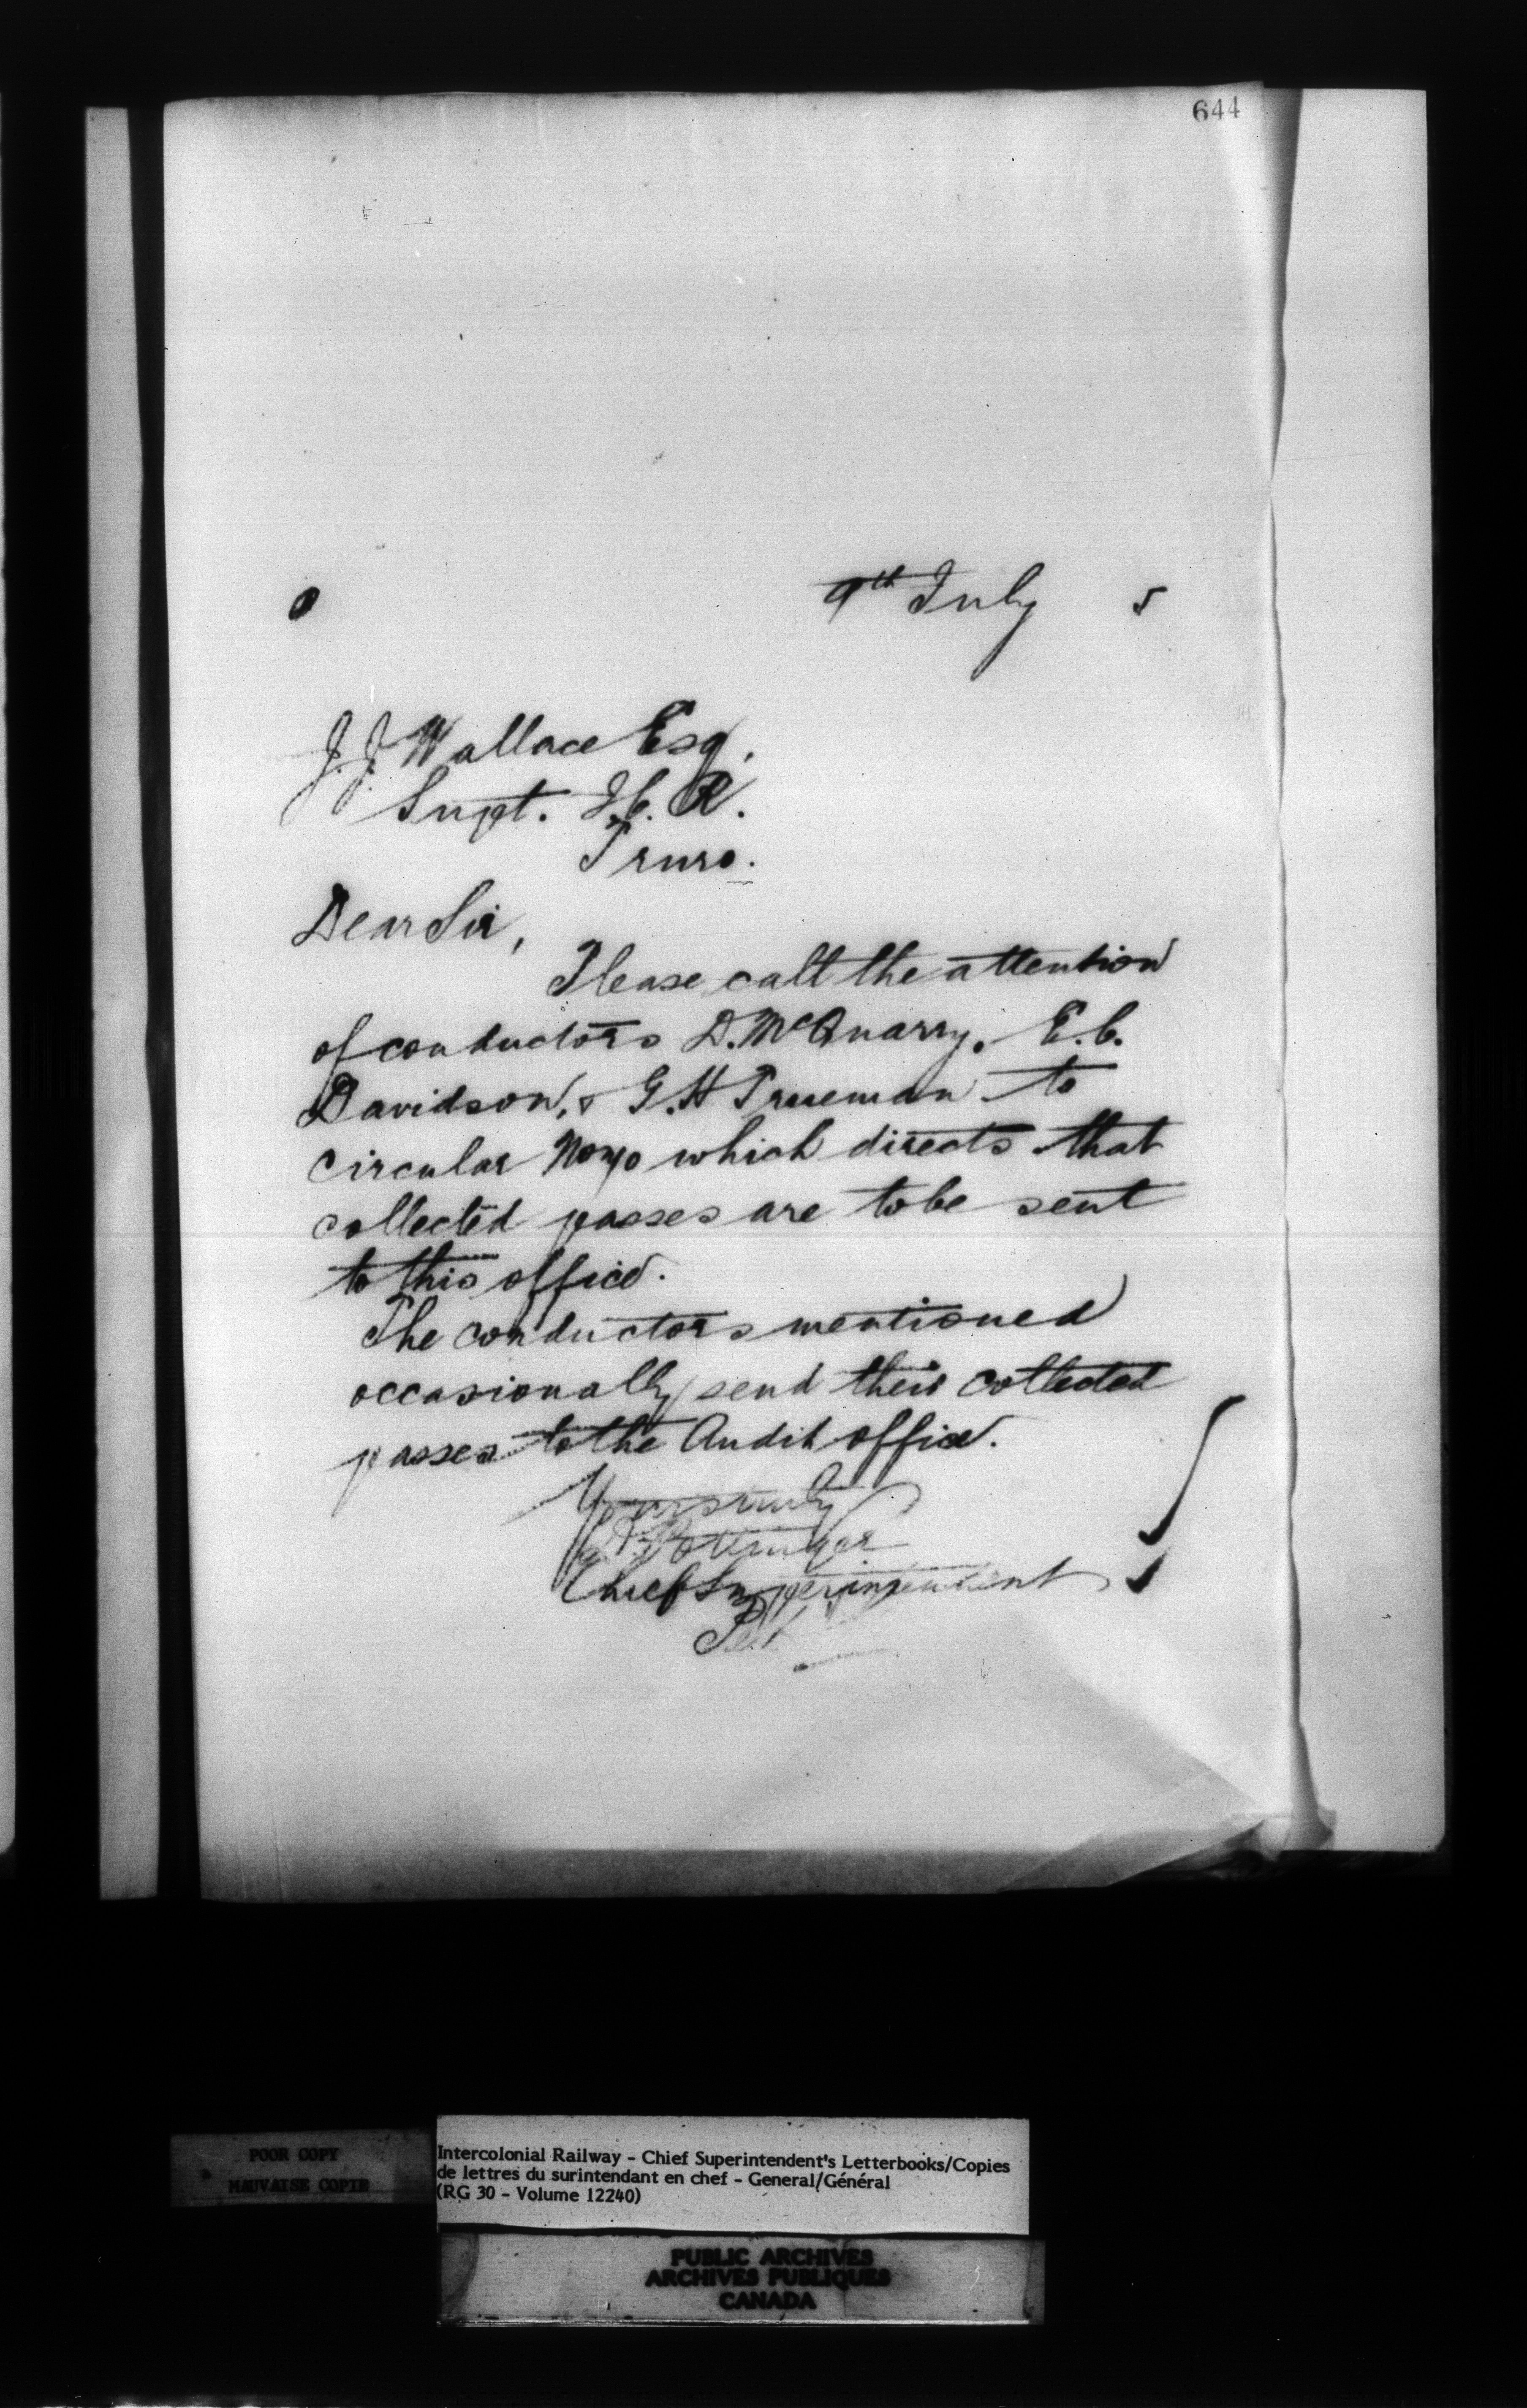 644
9th July 5
J. J. Wallace Esq.
Supt. I. C. R.
Truro.
Dear Sir,
Please call the attention
of conductors D. McQuarry, E. C.
Davidson, & G. H Trueman to
circular No which directs that
collected passes are to be sent
to this office.
The conductors mentioned
occasionally send their collected
passes to the Audit office.
Yours truly
D. Pottinger
Chief Superintendent
POOR COPY
MAUVAISE COPIE
Intercolonial Railway - Chief Superintendent's Letterbooks/Copies
de lettres du surintendant en chef - General/Général
(RG 30 - Volume 12240)
PUBLIC ARCHIVES
ARCHIVES PUBLIQUES
CANADA